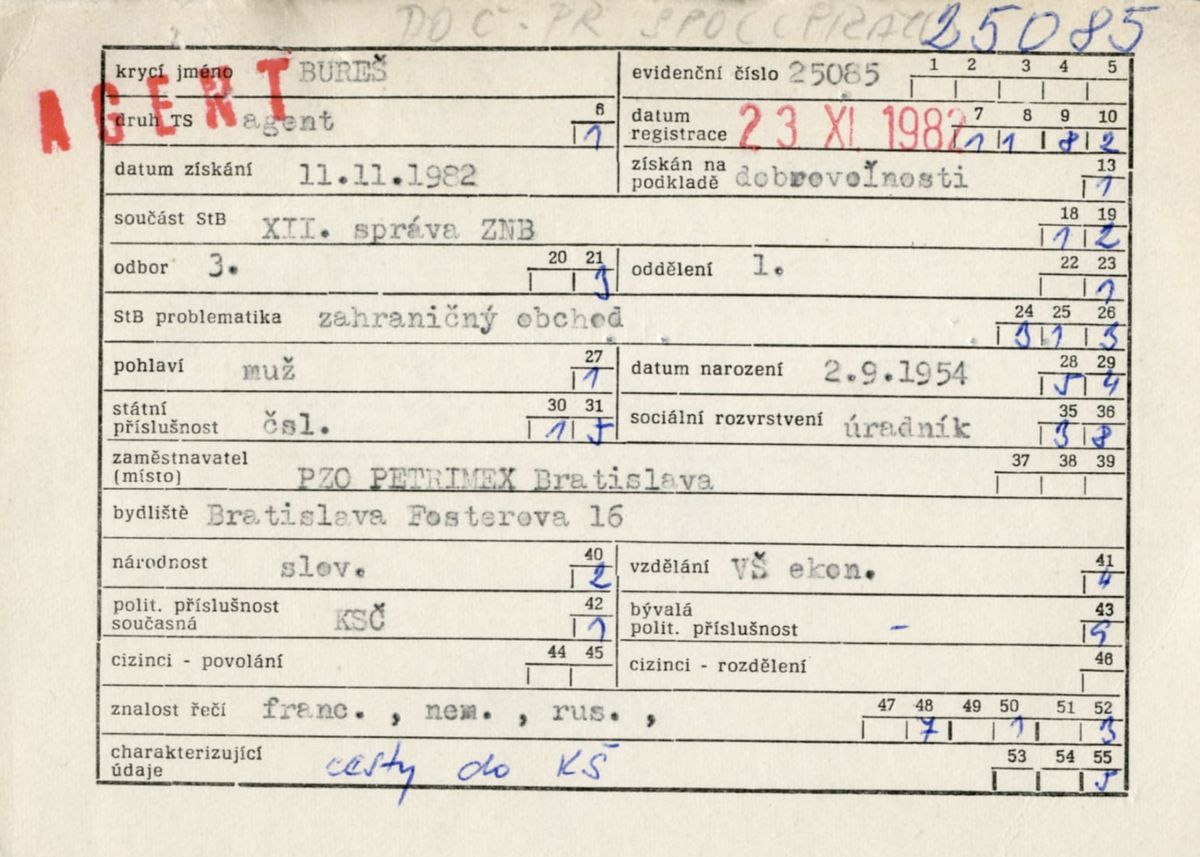 DOČ. PR SPOL 25085
AGENT
krycí jméno BUREŠ evidenční číslo 25085 1 2 3 4 5
druh TS agent 6 1 datum registrace 23 XI. 1982 7 8 9 10 1 1 8 2
datum získání 11.11.1982 získán na podkladě dobrovoľnosti 13 1
součást StB XII. správa ZNB 18 19 1 2
odbor 3. 20 21 3 oddělení 1. 22 23 1
StB problematika zahraničný obchod 24 25 26 3 1 3
pohlaví muž 27 1 datum narození 2.9.1954 28 29 5 4
státní příslušnost čsl. 30 31 1 5 sociální rozvrstvení úradník 35 36 3 8
zaměstnavatel (místo) PZO PETRIMEX Bratislava 37 38 39
bydliště Bratislava Fosterova 16
národnost slov. 40 2 vzdělání VŠ ekon. 41 4
polit. příslušnost současná KSČ 42 1 bývalá polit. příslušnost - 43 9
cizinci - povolání 44 45 cizinci - rozdělení 46
znalost řečí franc. , nem. , rus. , 47 48 49 50 51 52 7 1 3
charakterizující údaje cesty do KŠ 53 54 55 5